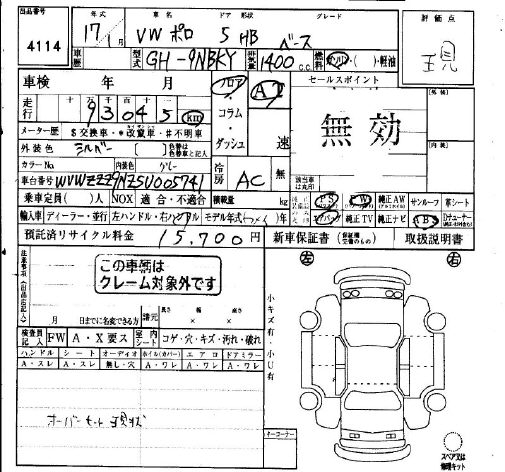 出品番号 4114
年式 17/1 車名 VW ポロ ドア 形状 5 HB グレード ベース
評価点 現
車歴 型式 GH-9NBKY 排気量 1400 c.c. 燃料 ガソリン・( )・軽油
車検 年 月 フロア・コラム・ダッシュ AT 速 セールスポイント
走行 十 万 千 百 十 一 93045 km 無効
メーター歴 $ 交換車・*改竄車・#不明車
外装色 シルバー [ ] 色替は色替車と記入
カラーNo. 内装色 グレー 冷房 AC 無 該当車は丸印
車台番号 WVWZZZ9NZSU005741
乗車定員( )人 NOX 適合・不適合 積載量 kg PS PW 純正AW サンルーフ 革シート
輸入車 ディーラー・並行 左ハンドル・右ハンドル モデル年式( )年 エアバッグ 純正TV 純正ナビ ABS
預託済リサイクル料金 15,700 円 新車保証書 取扱説明書
外装
内装
注意事項(出品店記入)
この車輌は
クレーム対象外です
月 日までに名変できる方 諸元 長さ 幅 高さ
検査員記入 FW A・X要ス 室内シート コゲ・穴・キズ・汚れ・破れ
ハンドル シート オーディオ ホイル(カバー) エアロ ドアミラー
A・スレ A・スレ 無し・穴 A・ワレ A・ワレ A・ワレ
オーバーセット 現状
左 右
小キズ有・小U有
キーコーナー
スペア又は
修理キット